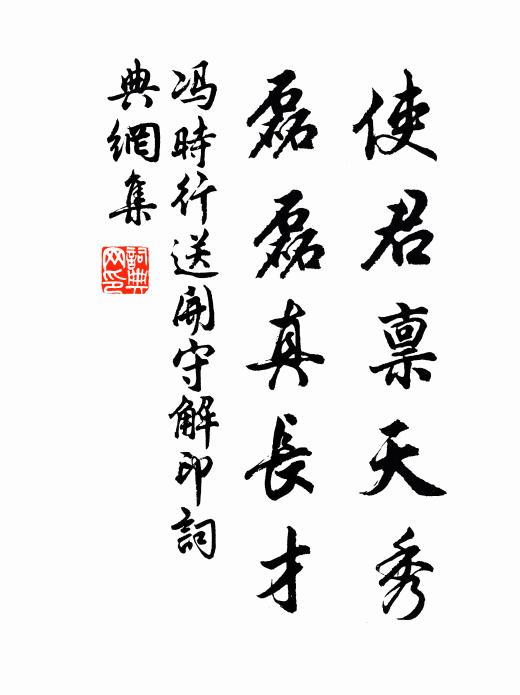 使君禀天秀
磊磊真長才
冯時行送開守解印詞
典網集
詞典网印